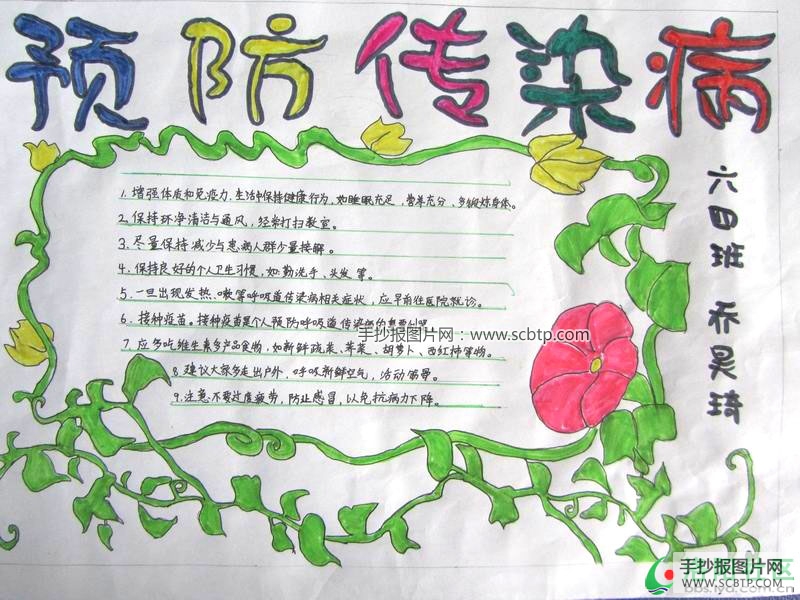 预防传染病
1. 增强体质和免疫力.生活中保持健康行为,如睡眠充足,营养充分、多锻炼身体。
2. 保持环净清洁与通风,经常打扫教室。
3. 尽量保持减少与患病人群少量接解。
4. 保持良好的个人卫生习惯,如勤洗手、头发等。
5. 一旦出现发热.嗽等呼吸道传染病相关症状,应早前往医院就诊。
6. 接种疫苗。接种疫苗是个人预防呼吸道传染
手抄报图片网:www.scbtp.com
7. 应多吃维生素多产品食物,如新鲜蔬菜、苹菜、胡萝卜、西红柿等物。
8. 建议大家多走出户外,呼吸新鲜空气,活动筋骨。
9.注意不要过度疲劳,防止感冒,以免抗病力下降。
六四班 乔昊琦
手抄报图片网
WWW.SCBTP.COM